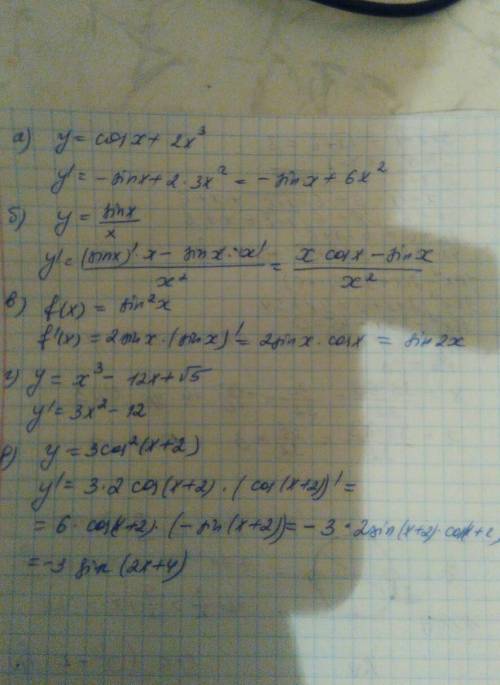 а) y = cos x + 2x³
y' = -sin x + 2 · 3x² = -sin x + 6x²
б) y = sin x / x
y' = ((sin x)' · x - sin x · x') / x² = (x cos x - sin x) / x²
в) f(x) = sin²x
f'(x) = 2 sin x · (sin x)' = 2 sin x · cos x = sin 2x
г) y = x³ - 12x + √5
y' = 3x² - 12
д) y = 3 cos²(x+2)
y' = 3 · 2 cos(x+2) · (cos(x+2))' =
= 6 · cos(x+2) · (-sin(x+2)) = -3 · 2 sin(x+2) · cos(x+2)
= -3 sin (2x+4)